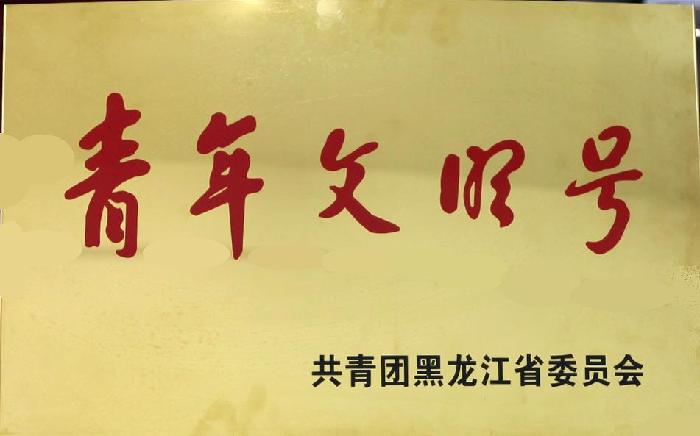 青年文明号
共青团黑龙江省委员会